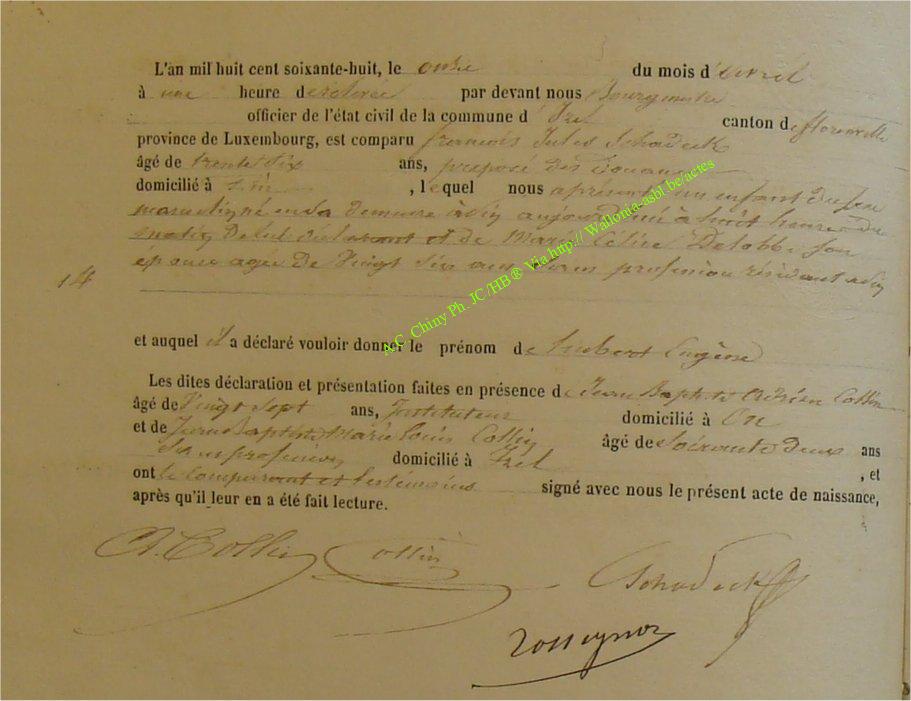 L'an mil huit cent soixante-huit, le onze du mois d'avril
à une heure de relevée par devant nous Bourgmestre
officier de l'état civil de la commune d'Izel canton de florenville
province de Luxembourg, est comparu françois Jules Schadeck
âgé de trente six ans, préposé des Douanes
domicilié à , lequel nous a présenté un enfant du sexe
masculin né en sa demeure à aujourd'hui à huit heures du
matin de lui déclarant et de Marie Céline Delobbe son
épouse agée de Vingt six ans sans profession résidant
14
et auquel il a déclaré vouloir donner le prénom de hubert Eugène
Les dites déclaration et présentation faites en présence de Jean Baptiste Adrien Collin
âgé de Vingt sept ans, Instituteur domicilié à
et de Jean Baptiste Marie Louis Collin âgé de Soixante deux ans
Sans profession domicilié à Izel , et
ont le comparant et les témoins signé avec nous le présent acte de naissance,
après qu'il leur en a été fait lecture.
A. Collin Collin Schadeck
Rossignon
A.C. Chiny Ph. JC/HB® Via http:// Wallonia-asbl.be/actes